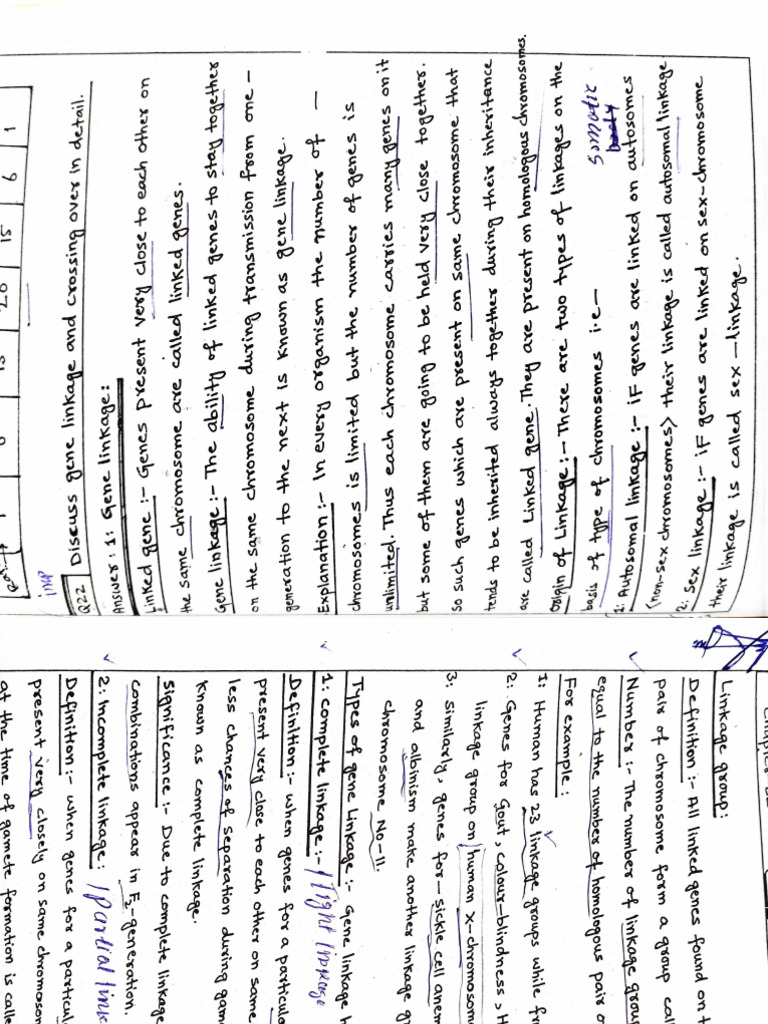 Q22 Discuss gene linkage and crossing over in detail.
Answer: 1: Gene linkage:
Linked gene :- Genes present very close to each other on
the same chromosome are called linked genes.
Gene linkage :- The ability of linked genes to stay together
on the same chromosome during transmission from one -
generation to the next is known as gene linkage.
Explanation :- In every organism the number of —
chromosomes is limited but the number of genes is
unlimited. Thus each chromosome carries many genes on it
but some of them are going to be held very close together.
So such genes which are present on same chromosome that
tends to be inherited always together during their inheritance
are called Linked gene. They are present on homologous chromosomes.
Origin of Linkage :- There are two types of linkages on the
basis of type of chromosomes i.e —
somatic
1: Autosomal linkage :- iF genes are linked on autosomes
(non-sex chromosomes) their linkage is called autosomal linkage
2: Sex linkage :- iF genes are linked on sex-chromosome
their linkage is called sex-linkage.
imp
1 6 15 20
Linkage group:
Definition :- All linked genes found on
pair of chromosome form a group
Number :- The number of linkage
equal to the number of homologous pair
For example :
1: Human has 23 linkage groups while
2: Genes for Gout, colour-blindness,
linkage group on human x-chromosome
3: similarly, genes for - sickle cell
and albinism make another linkage
chromosome No-11.
Types of gene Linkage :- Gene linkage
1: complete linkage :- / Tight linkage
Definition :- when genes for a
present very close to each other on same
less chances of separation during
known as complete linkage.
significance :- Due to complete linkage
combinations appear in F2-generation.
2: Incomplete linkage : / Partial
Definition :- when genes for a
present very closely on same
at the time of gamete formation is